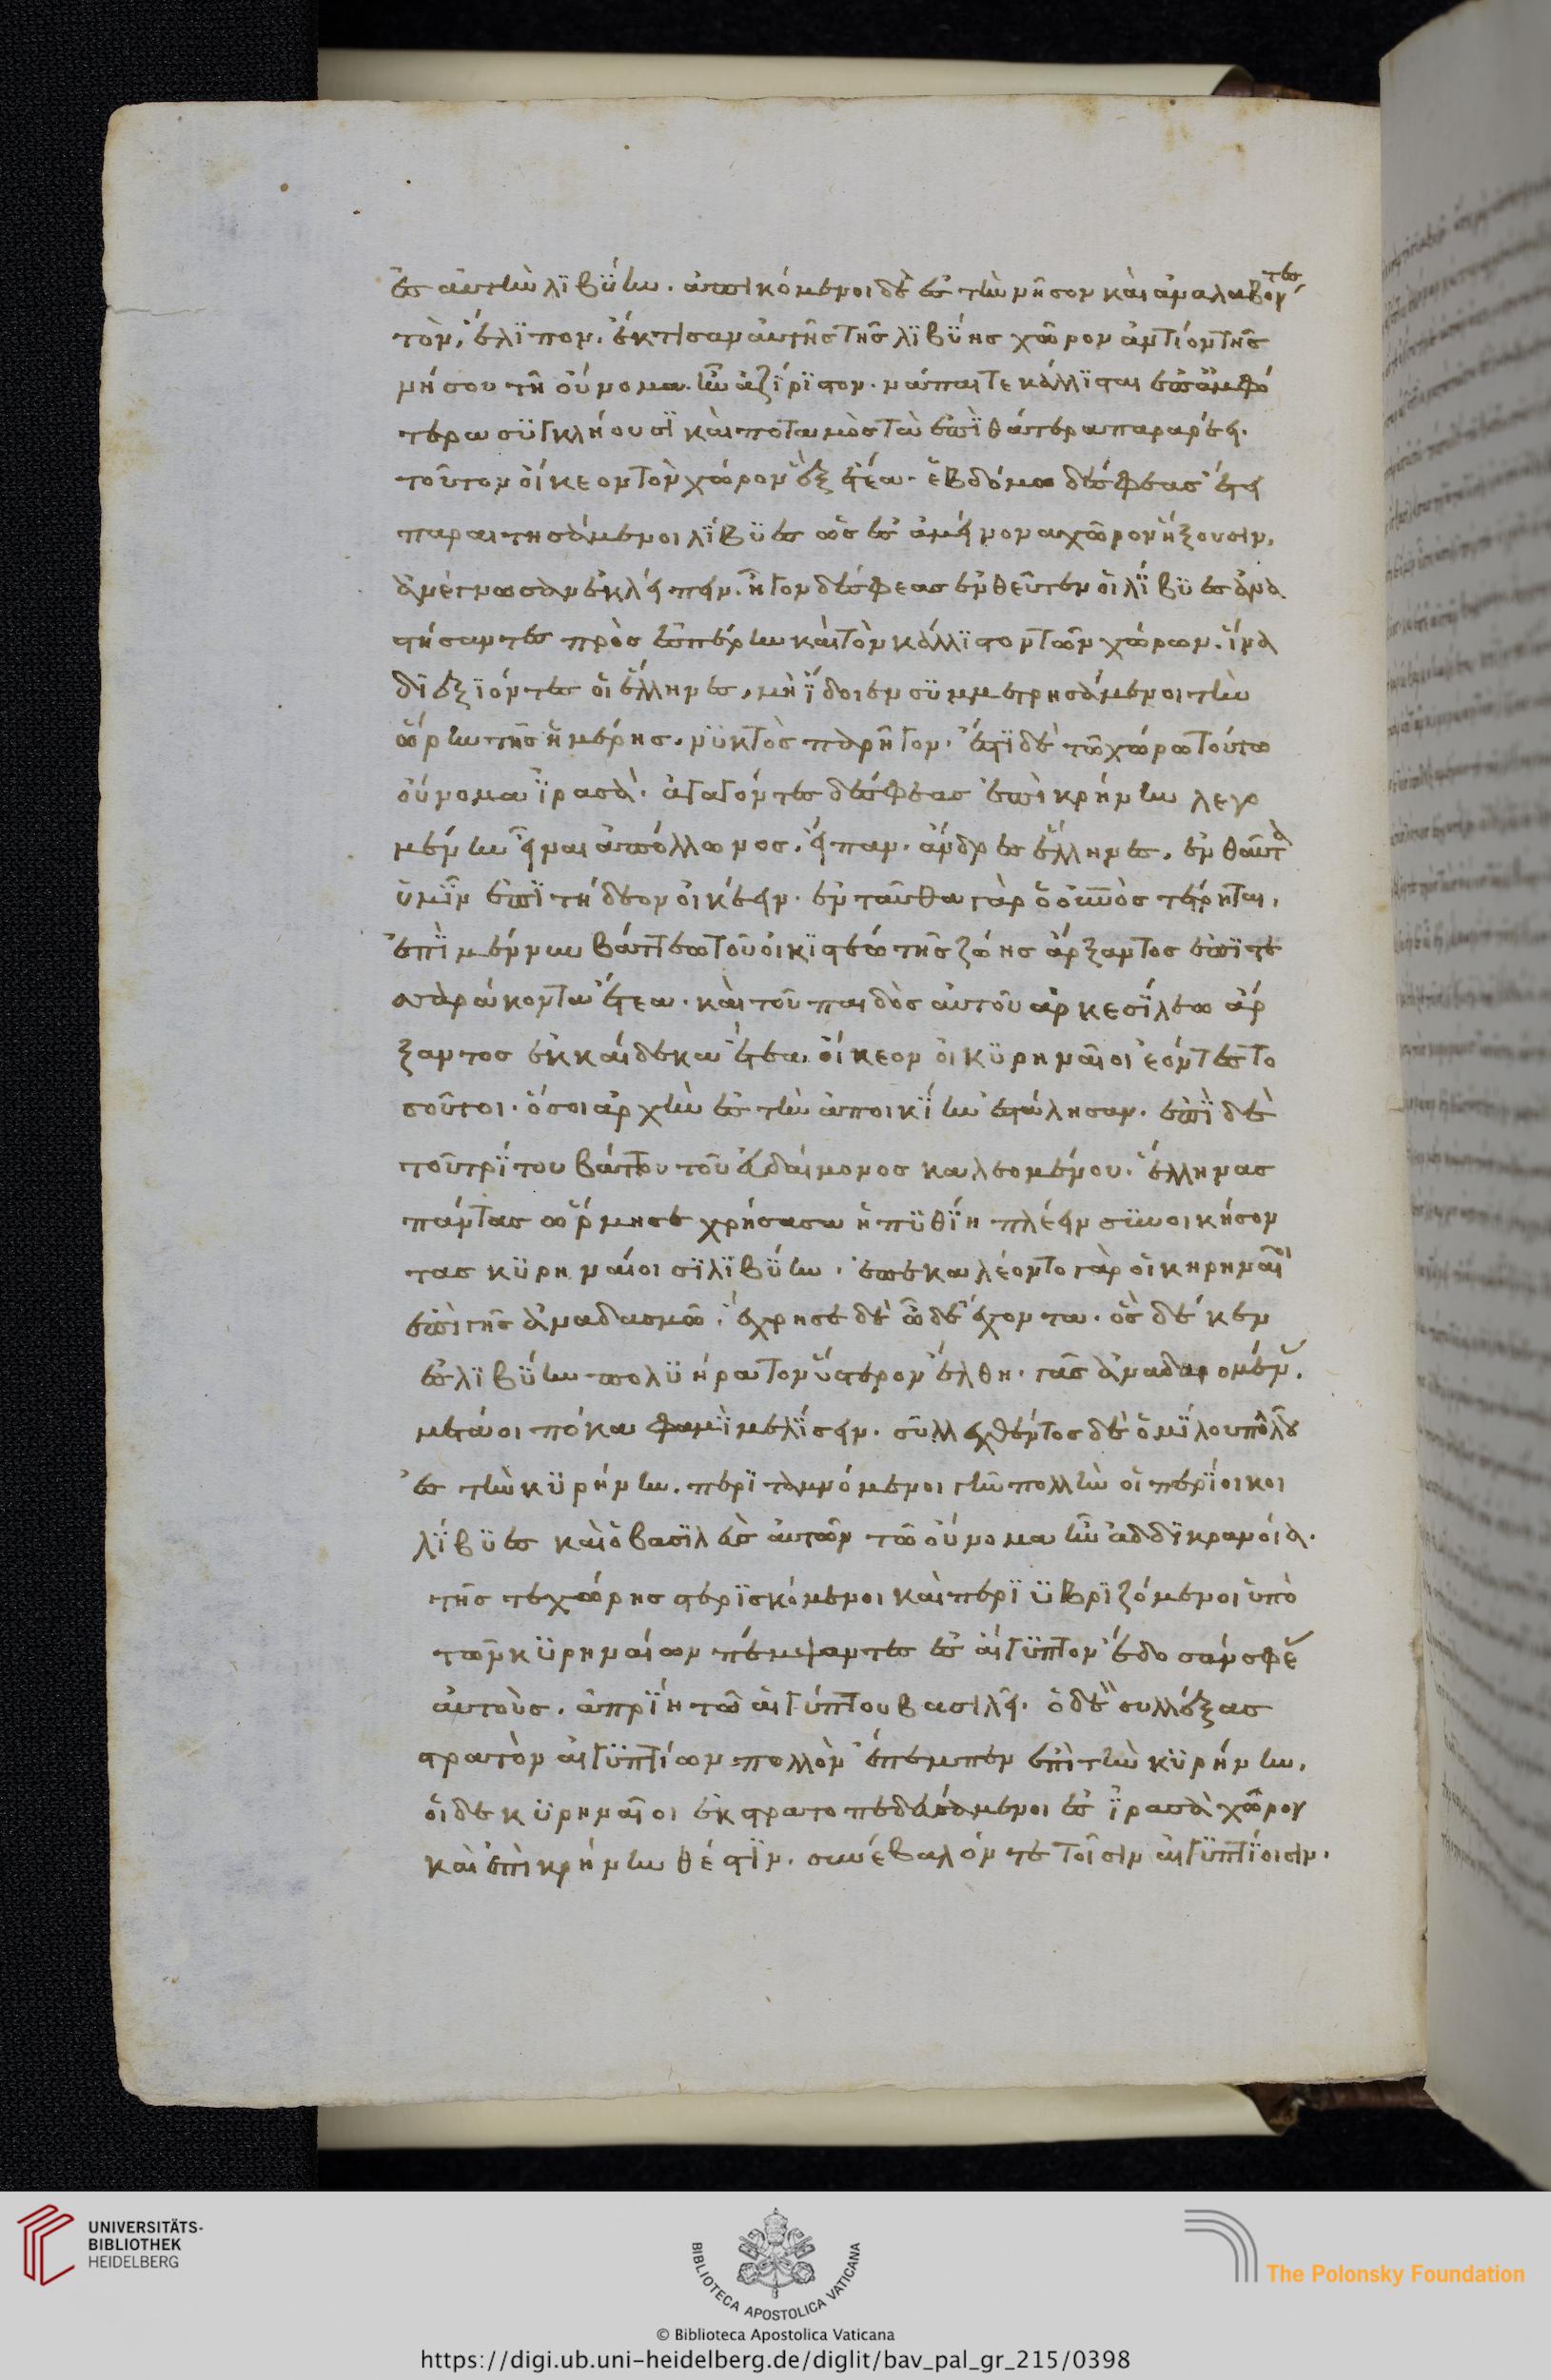 ἐς αὐτὴν λϊβύην. ἀπικόμενοι δὲ ἐς τὴν νῆσον καὶ ἀναλαβόντες
τὸν, ἔλϊπον. ἔκτισαν αὐτῆς τῆς λϊβύης χῶρον ἀντίον τῆς
νήσου τῆ οὔνομα ἦν ἄζϊρϊστον. νάπαι τε κάλλϊσται ἐπ' ἀμφό
τερα συγκληΐουσϊ καὶ ποταμὸς τὰ ἐπῒ θάτερα παραρέει.
τοῦτον οἴκεον τὸν χῶρον ἓξ ἔτεα. ἑβδόμω δέ σφεας ἔτει
παραιτησάμενοι λίβυες ὡς ἐς ἀμείνονα χῶρον ἥξουσιν,
ἀνέγνωσαν ἐκλείπειν. ἦγον δέ σφεας ἐνθεῦτεν οἱ λίβυες ἀνα
στήσαντες πρὸς ἑσπέρην καὶ τὸν κάλλϊστον τῶν χώρων. ἵνα
δϊεξϊόντες οἱ ἕλληνες, μὴ ἴδοιεν συμμετρησάμενοι τὴν
ὥρην τῆς ἡμέρης, νυκτὸς παρῆγον. ἔστϊ δὲ τῶ χώρω τούτω
οὔνομα ἴρασα. ἀγαγόντες δέ σφεας ἐπὶ κρήνην λεγο
μένην εἶναι ἀπόλλωνος, εἶπαν. ἄνδρες ἕλληνες, ἐνθαῦτα
ὑμῖν ἐπϊτήδεον οἰκέειν. ἐνταῦθα γὰρ ὁ οὐνὸς τέρηται,
ἐπῒ μέν νυν βάττεω τοῦ οἰκϊστέω τῆς ζόης ἄρξαντος ἐπῒ τε
σσαράκοντα ἔτεα. καὶ τοῦ παιδὸς αὐτοῦ ἀρκεσΐλεω ἄρ
ξαντος ἑκκαίδεκα ἔτεα, οἴκεον οἱ κυρηναῖοι ἐόντες το
σοῦτοι. ὅσοι ἀρχὴν ἐς τὴν ἀποικΐην ἐστάλησαν. ἐπῒ δὲ
τοῦ τρίτου βάττου τοῦ εὐδαίμονος καλεομένου. ἕλληνας
πάντας ὥρμησε χρήσασα ἡ πυθΐη πλέειν συνοικήσον
τας κυρηναίοισϊ λϊβύην. ἐπεκαλέοντο γὰρ οἱ κηρηναῖοι
ἐπὶ γῆς ἀναδασμῶ. ἔχρησε δὲ ὧδε ἔχοντα. ὃς δέ κεν
ἐς λϊβύην πολυήρατον ὕστερον ἔλθη. γᾶς ἀναδαιομένας,
μετά οἱ πόκα φαμῒ μελΐσειν. συλλεχθέντος δὲ ὁμΐλου πολλοῦ
ἐς τὴν κυρήνην. περϊταμνόμενοι γῆν πολλὴν οἱ περΐοικοι
λίβυες καὶ ὁ βασϊλεὺς αὐτῶν τῶ οὔνομα ἦν ἀδδϊκρανόια.
τῆς τε χώρης στερϊσκόμενοι καὶ περϊϋβρϊζόμενοι ὑπὸ
τῶν κυρηναίων πέμψαντες ἐς αἴγυπτον ἔδοσαν σφέας
αὐτοὺς. ἀπρΐη τῶ αἰγύπτου βασιλέι. ὁ δὲ συλλέξας
στρατὸν αἰγυπτίων πολλὸν ἔπεμπεν ἐπὶ τὴν κυρήνην.
οἱ δε κυρηναῖοι ἐκστρατοπεδευσάμενοι ἐς ἴρασα χῶρον
καὶ ἐπὶ κρήνην θέστϊν. συνέβαλόν τε τοῖσιν αἰγυπτίοισιν.
UNIVERSITÄTS-
BIBLIOTHEK
HEIDELBERG
BIBLIOTECA APOSTOLICA VATICANA
The Polonsky Foundation
© Biblioteca Apostolica Vaticana
https://digi.ub.uni-heidelberg.de/diglit/bav_pal_gr_215/0398